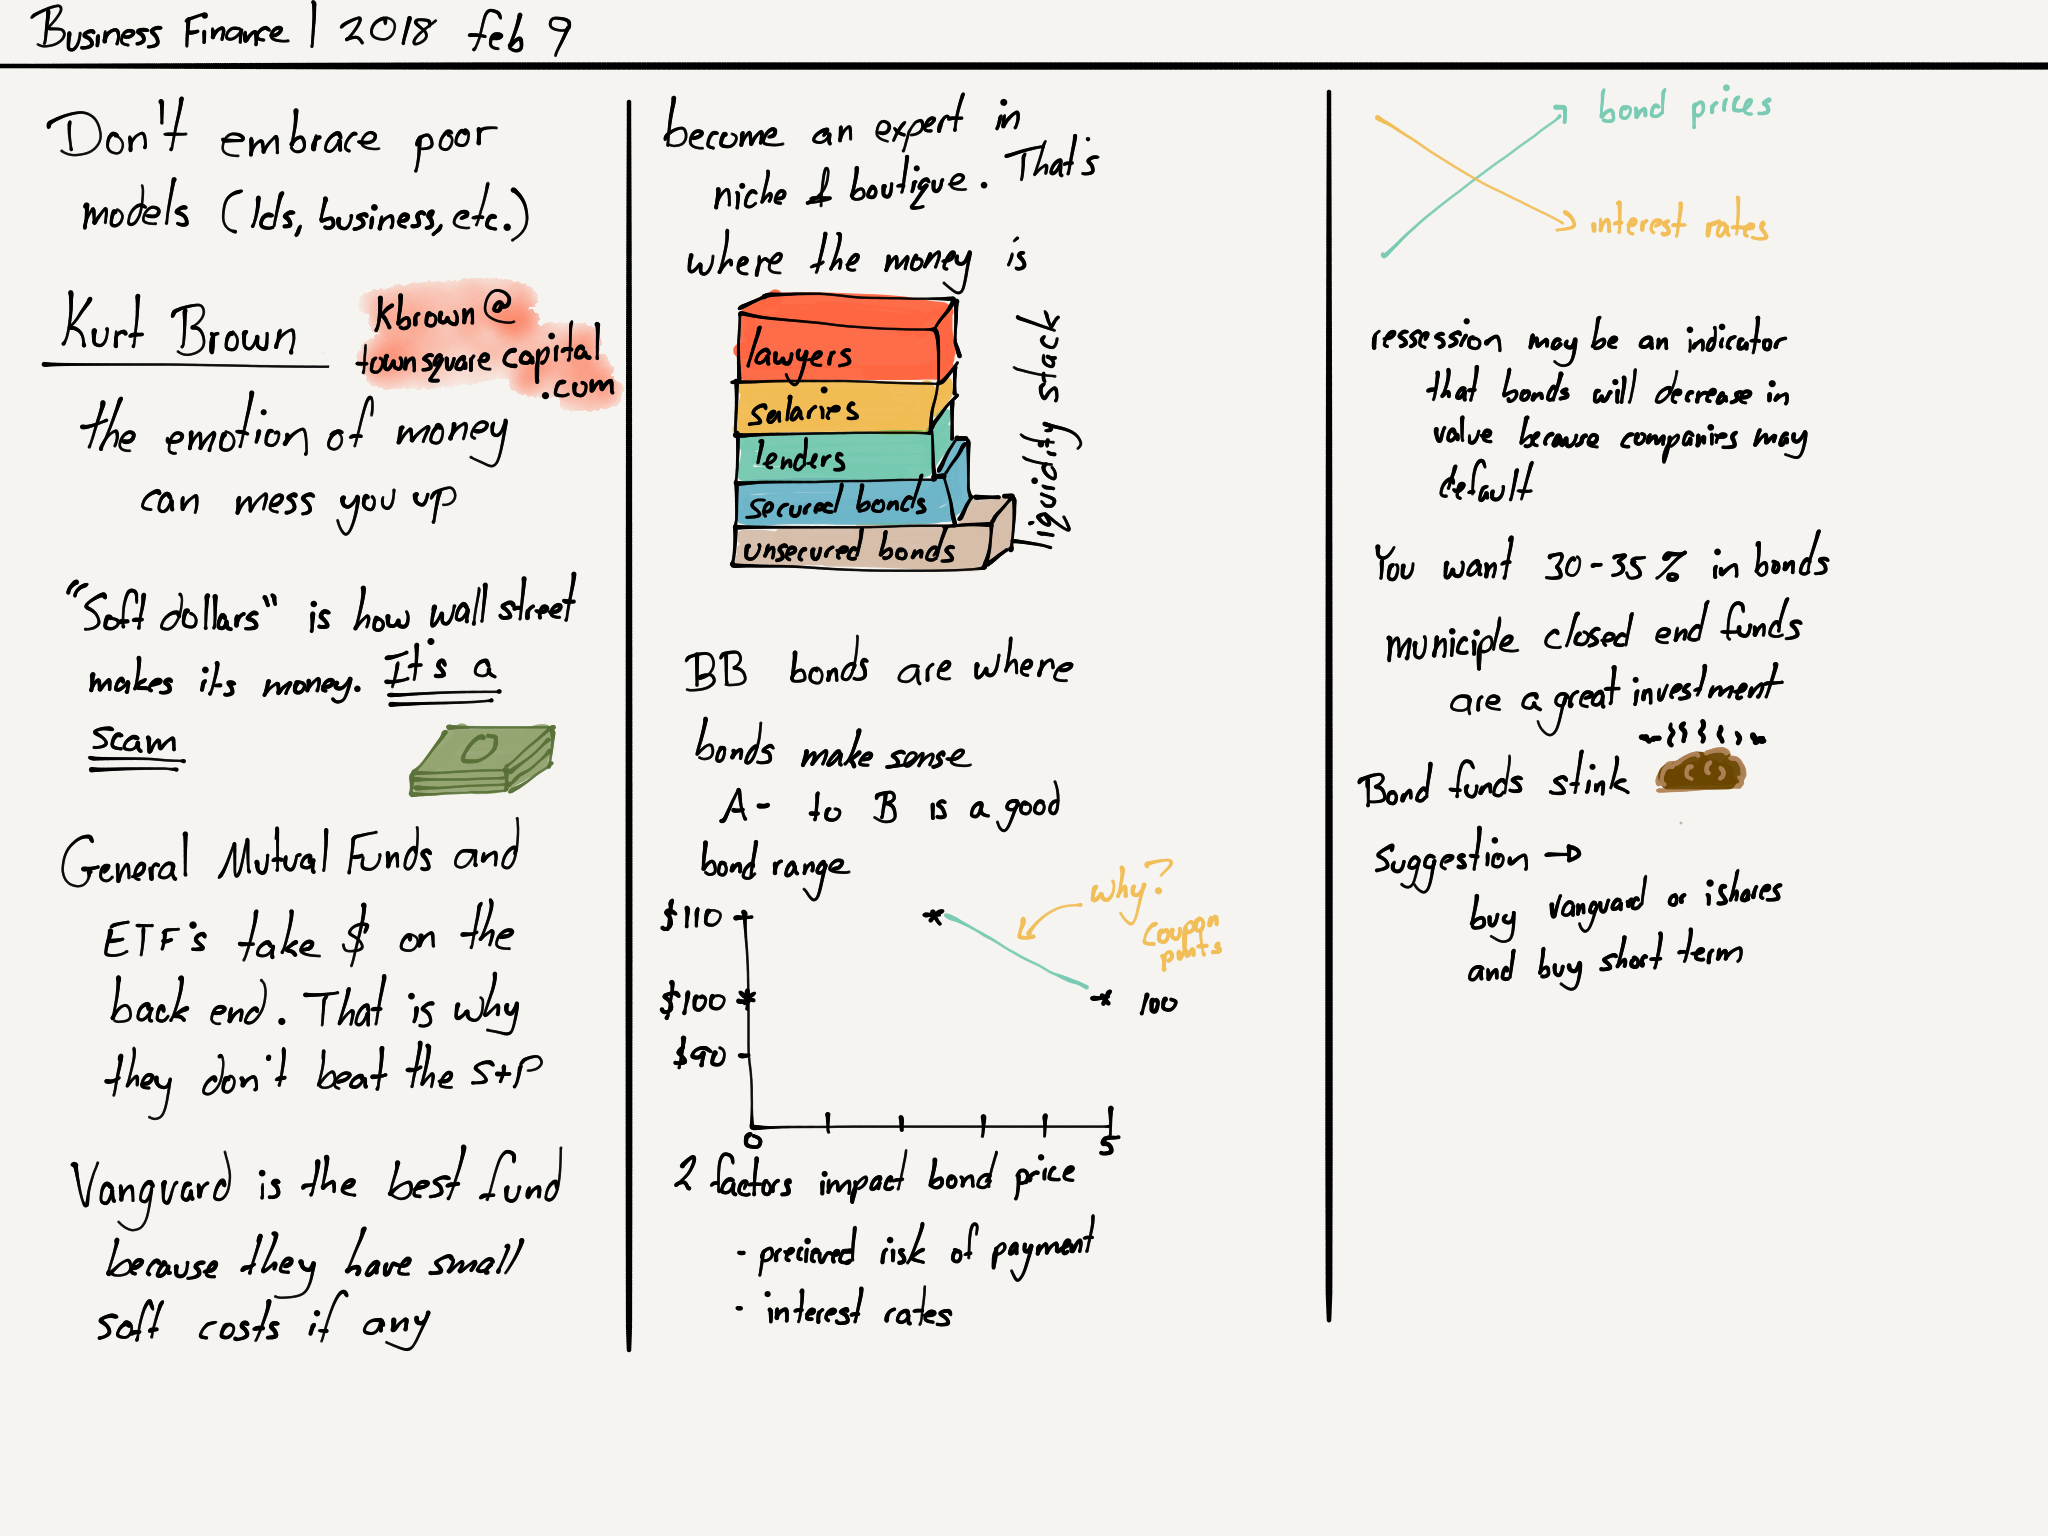 Business Finance | 2018 feb 9
Don't embrace poor
models (lds, business, etc.)
Kurt Brown
Kbrown@
townsquarecapital
.com
the emotion of money
can mess you up
"Soft dollars" is how wall street
makes its money. It's a
scam
General Mutual Funds and
ETF's take $ on the
back end. That is why
they don't beat the S+P
Vanguard is the best fund
because they have small
soft costs if any
become an expert in
niche & boutique. That's
where the money is
lawyers
salaries
lenders
secured bonds
unsecured bonds
liquidity stack
BB bonds are where
bonds make sense
A- to B is a good
bond range
$110
$100
$90
0
5
why?
coupon
100
2 factors impact bond price
- precieved risk of payment
- interest rates
bond prices
interest rates
ressession may be an indicator
that bonds will decrease in
value because companies may
default
You want 30-35% in bonds
municiple closed end funds
are a great investment
Bond funds stink
Suggestion →
buy vanguard or ishares
and buy short term